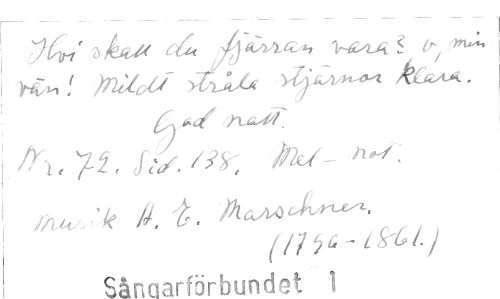 Hvi skall du fjärran vara? o, min
vän! Mildt stråla stjärnor klara.
God natt.
Nr. 72. Sid. 138. Mel-not.
musik H. E. Marschner.
(1796-1861.)
Sångarförbundet 1